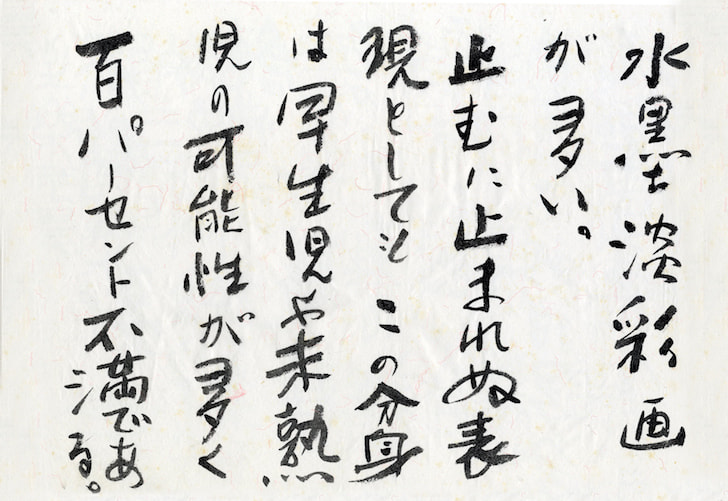 水墨淡彩画
が多い。
止むに止まれぬ表
現としてもこの分身
は早生児や未熟
児の可能性が多く
百パーセント不満であ
る。